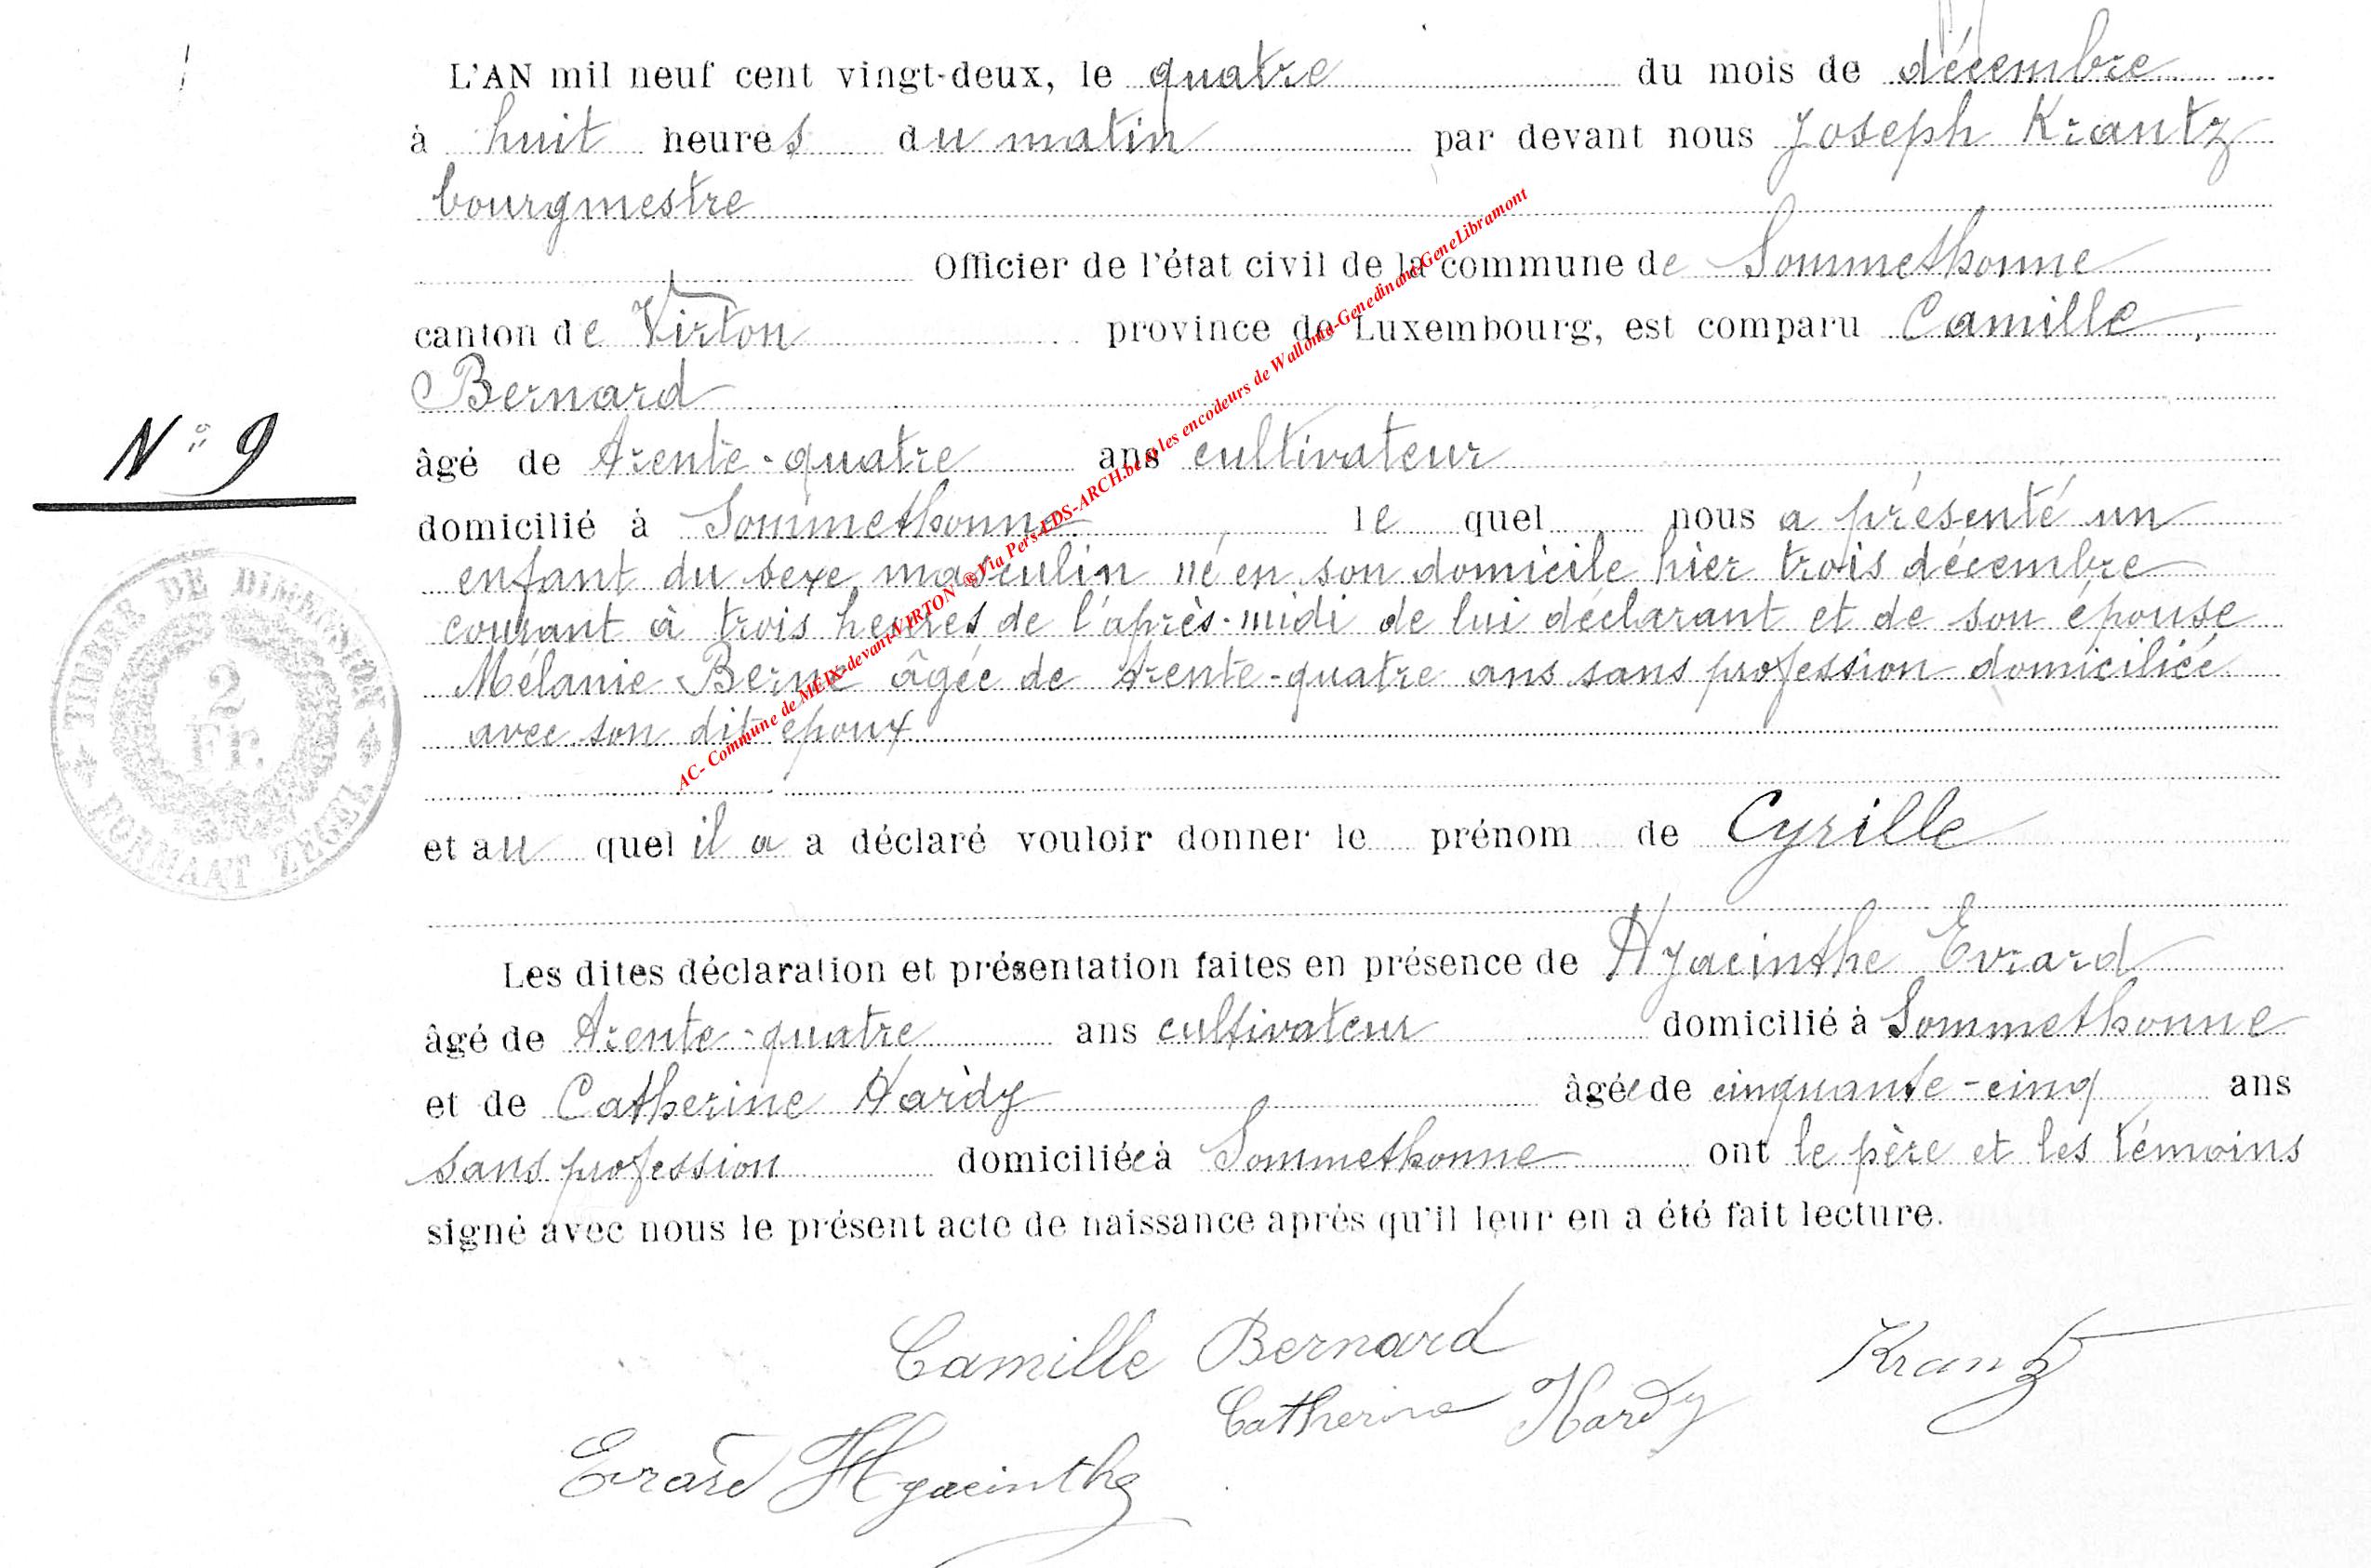 L'AN mil neuf cent vingt-deux, le quatre du mois de décembre
à huit heures du matin par devant nous Joseph Krantz
bourgmestre
Officier de l'état civil de la commune de Sommethonne
canton de Virton province de Luxembourg, est comparu Camille
Bernard
N° 9
âgé de trente-quatre ans cultivateur
domicilié à Sommethonne le quel nous a présenté un
enfant du sexe masculin né en son domicile hier trois décembre
courant à trois heures de l'après-midi de lui déclarant et de son épouse
Mélanie Berne âgée de trente-quatre ans sans profession domiciliée
avec son dit époux
TIMBRE DE DIMENSION
2
Fr.
FORMAAT ZEGEL
et au quel il a a déclaré vouloir donner le prénom de Cyrille
Les dites déclaration et présentation faites en présence de Hyacinthe Evrard
âgé de trente-quatre ans cultivateur domicilié à Sommethonne
et de Catherine Hardy âgée de cinquante-cinq ans
sans profession domiciliée à Sommethonne ont le père et les témoins
signé avec nous le présent acte de naissance après qu'il leur en a été fait lecture.
Camille Bernard Krantz
Catherine Hardy
Evrard Hyacinthe
AC- Commune de MEIX-devant-VIRTON ® Via Pers-LDS-ARCH.be et les encodeurs de Wallonia-Genedinant-GeneLibramont